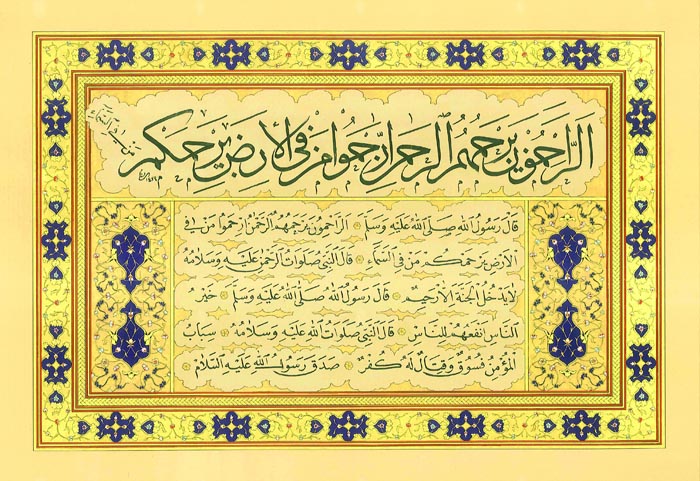 الراحمون يرحمهم الرحمن ارحموا من في الأرض يرحمكم
من في السماء
قال رسول الله صلى الله عليه وسلم الراحمون يرحمهم الرحمن ارحموا من في
الأرض يرحمكم من في السماء قال النبي صلوات الرحمن عليه وسلامه
لا يدخل الجنة إلا رحيم قال رسول الله صلى الله عليه وسلم خير
الناس أنفعهم للناس قال النبي صلوات الله عليه وسلامه سباب
المؤمن فسوق وقتاله كفر صدق رسول الله عليه السلام